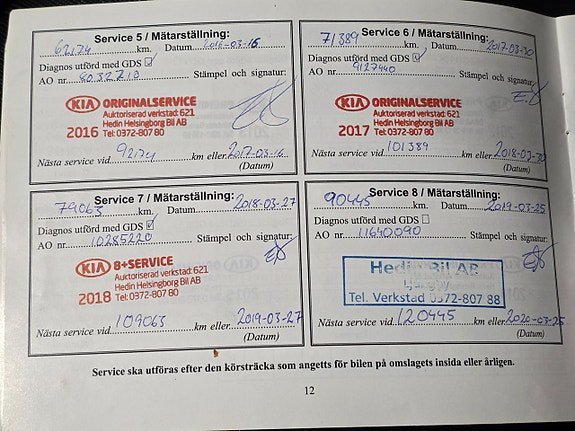 Service 5 / Mätarställning:
62174 km. Datum 2016-03-16
Diagnos utförd med GDS
AO nr. 8032718
Stämpel och signatur:
KIA ORIGINALSERVICE
Auktoriserad verkstad: 621
Hedin Helsingborg Bil AB
2016 Tel: 0372-807 80
Nästa service vid 92174 km eller 2017-03-16
(Datum)
Service 6 / Mätarställning:
71389 km. Datum 2017-03-30
Diagnos utförd med GDS
AO nr. 9127440
Stämpel och signatur:
KIA ORIGINALSERVICE
Auktoriserad verkstad: 621
Hedin Helsingborg Bil AB
2017 Tel: 0372-807 80
Nästa service vid 101389 km eller 2018-03-30
(Datum)
Service 7 / Mätarställning:
79063 km. Datum 2018-03-27
Diagnos utförd med GDS
AO nr. 10285220 Stämpel och signatur:
KIA 8+SERVICE
Auktoriserad verkstad: 621
Hedin Helsingborg Bil AB
2018 Tel: 0372-807 80
Nästa service vid 109063 km eller 2019-03-27
(Datum)
Service 8 / Mätarställning:
90445 km. Datum 2019-03-25
Diagnos utförd med GDS
AO nr. 11640090 Stämpel och signatur:
Hedin Bil AB
Ljungby
Tel. Verkstad 0372-807 88
Nästa service vid 120445 km eller 2020-03-25
(Datum)
Service ska utföras efter den körsträcka som angetts för bilen på omslagets insida eller årligen.
12